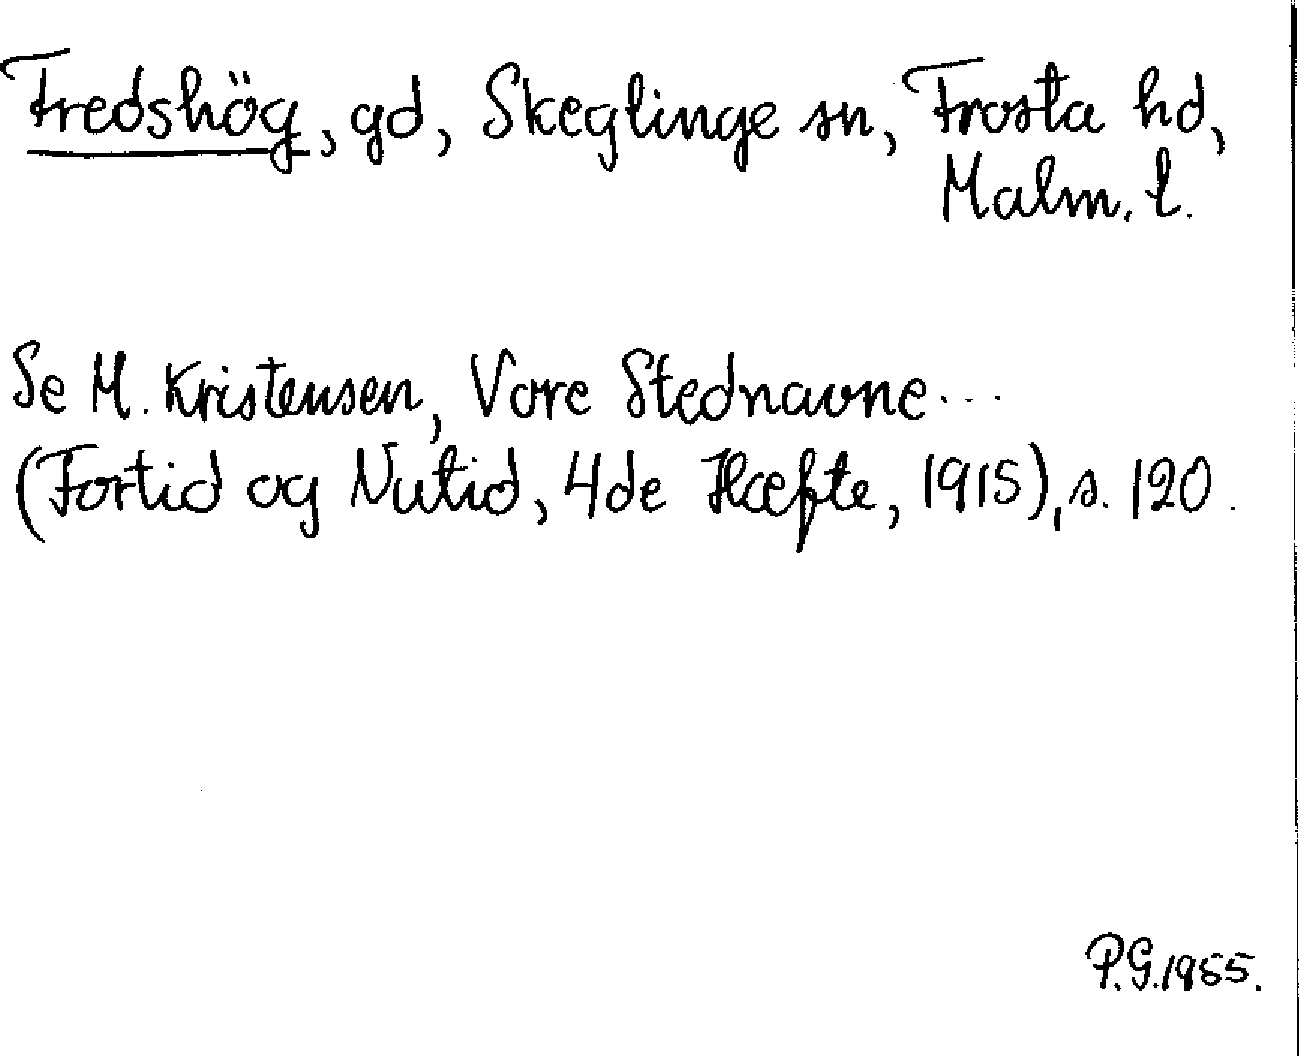 Fredshög, gd, Skeglinge sn, Frosta hd,
Malm. l.
Se M. Kristensen, Vore Stednavne...
(Fortid og Nutid, 4de Hæfte, 1915), s. 120.
P.G. 1955.